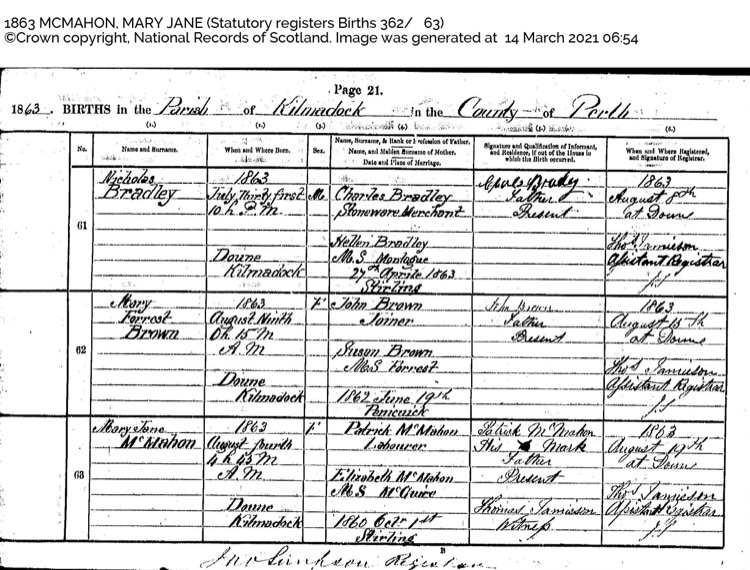 1863 MCMAHON, MARY JANE (Statutory registers Births 362/ 63)
©Crown copyright, National Records of Scotland. Image was generated at 14 March 2021 06:54
Page 21.
1863. BIRTHS in the Parish of Kilmadock in the County of Perth
(1.) (2.) (3.) (4.) (5.) (6.)
No.
Name and Surname.
When and Where Born.
Sex.
Name, Surname, & Rank or Profession of Father.
Name, and Maiden Surname of Mother.
Date and Place of Marriage.
Signature and Qualification of Informant,
and Residence, if out of the House in
which the Birth occurred.
When and Where Registered,
and Signature of Registrar.
61
Nicholas
Bradley
1863
July Thirty first
10 h. P.M.
Doune
Kilmadock
M.
Charles Bradley
Stoneware Merchant
Hellen Bradley
M.S. Montague
27th Aprile 1863
Stirling
Charles Bradley
Father
Present
1863
August 8th
at Doune
Thos Jamieson
Assistant Registrar
J.S
62
Mary
Forrest
Brown
1863
August Ninth
0h. 15 M
A.M
Doune
Kilmadock
F.
John Brown
Joiner
Susan Brown
M.S. Forrest
1862 June 19th
Penicuick
John Brown
Father
Present
1863
August 15th
at Doune
Thos Jamieson
Assistant Registrar
J.S
63
Mary Jane
McMahon
1863
August fourth
4 h 45 M
A.M.
Doune
Kilmadock
F.
Patrick McMahon
Labourer
Elizabeth McMahon
M.S McGuire
1860 Octr 1st
Stirling
Patrick McMahon
His X Mark
Father
Present
Thomas Jamieson
Witness
1863
August 19th
at Doune
Thos Jamieson
Assistant Registrar
J.S
Registrar
B